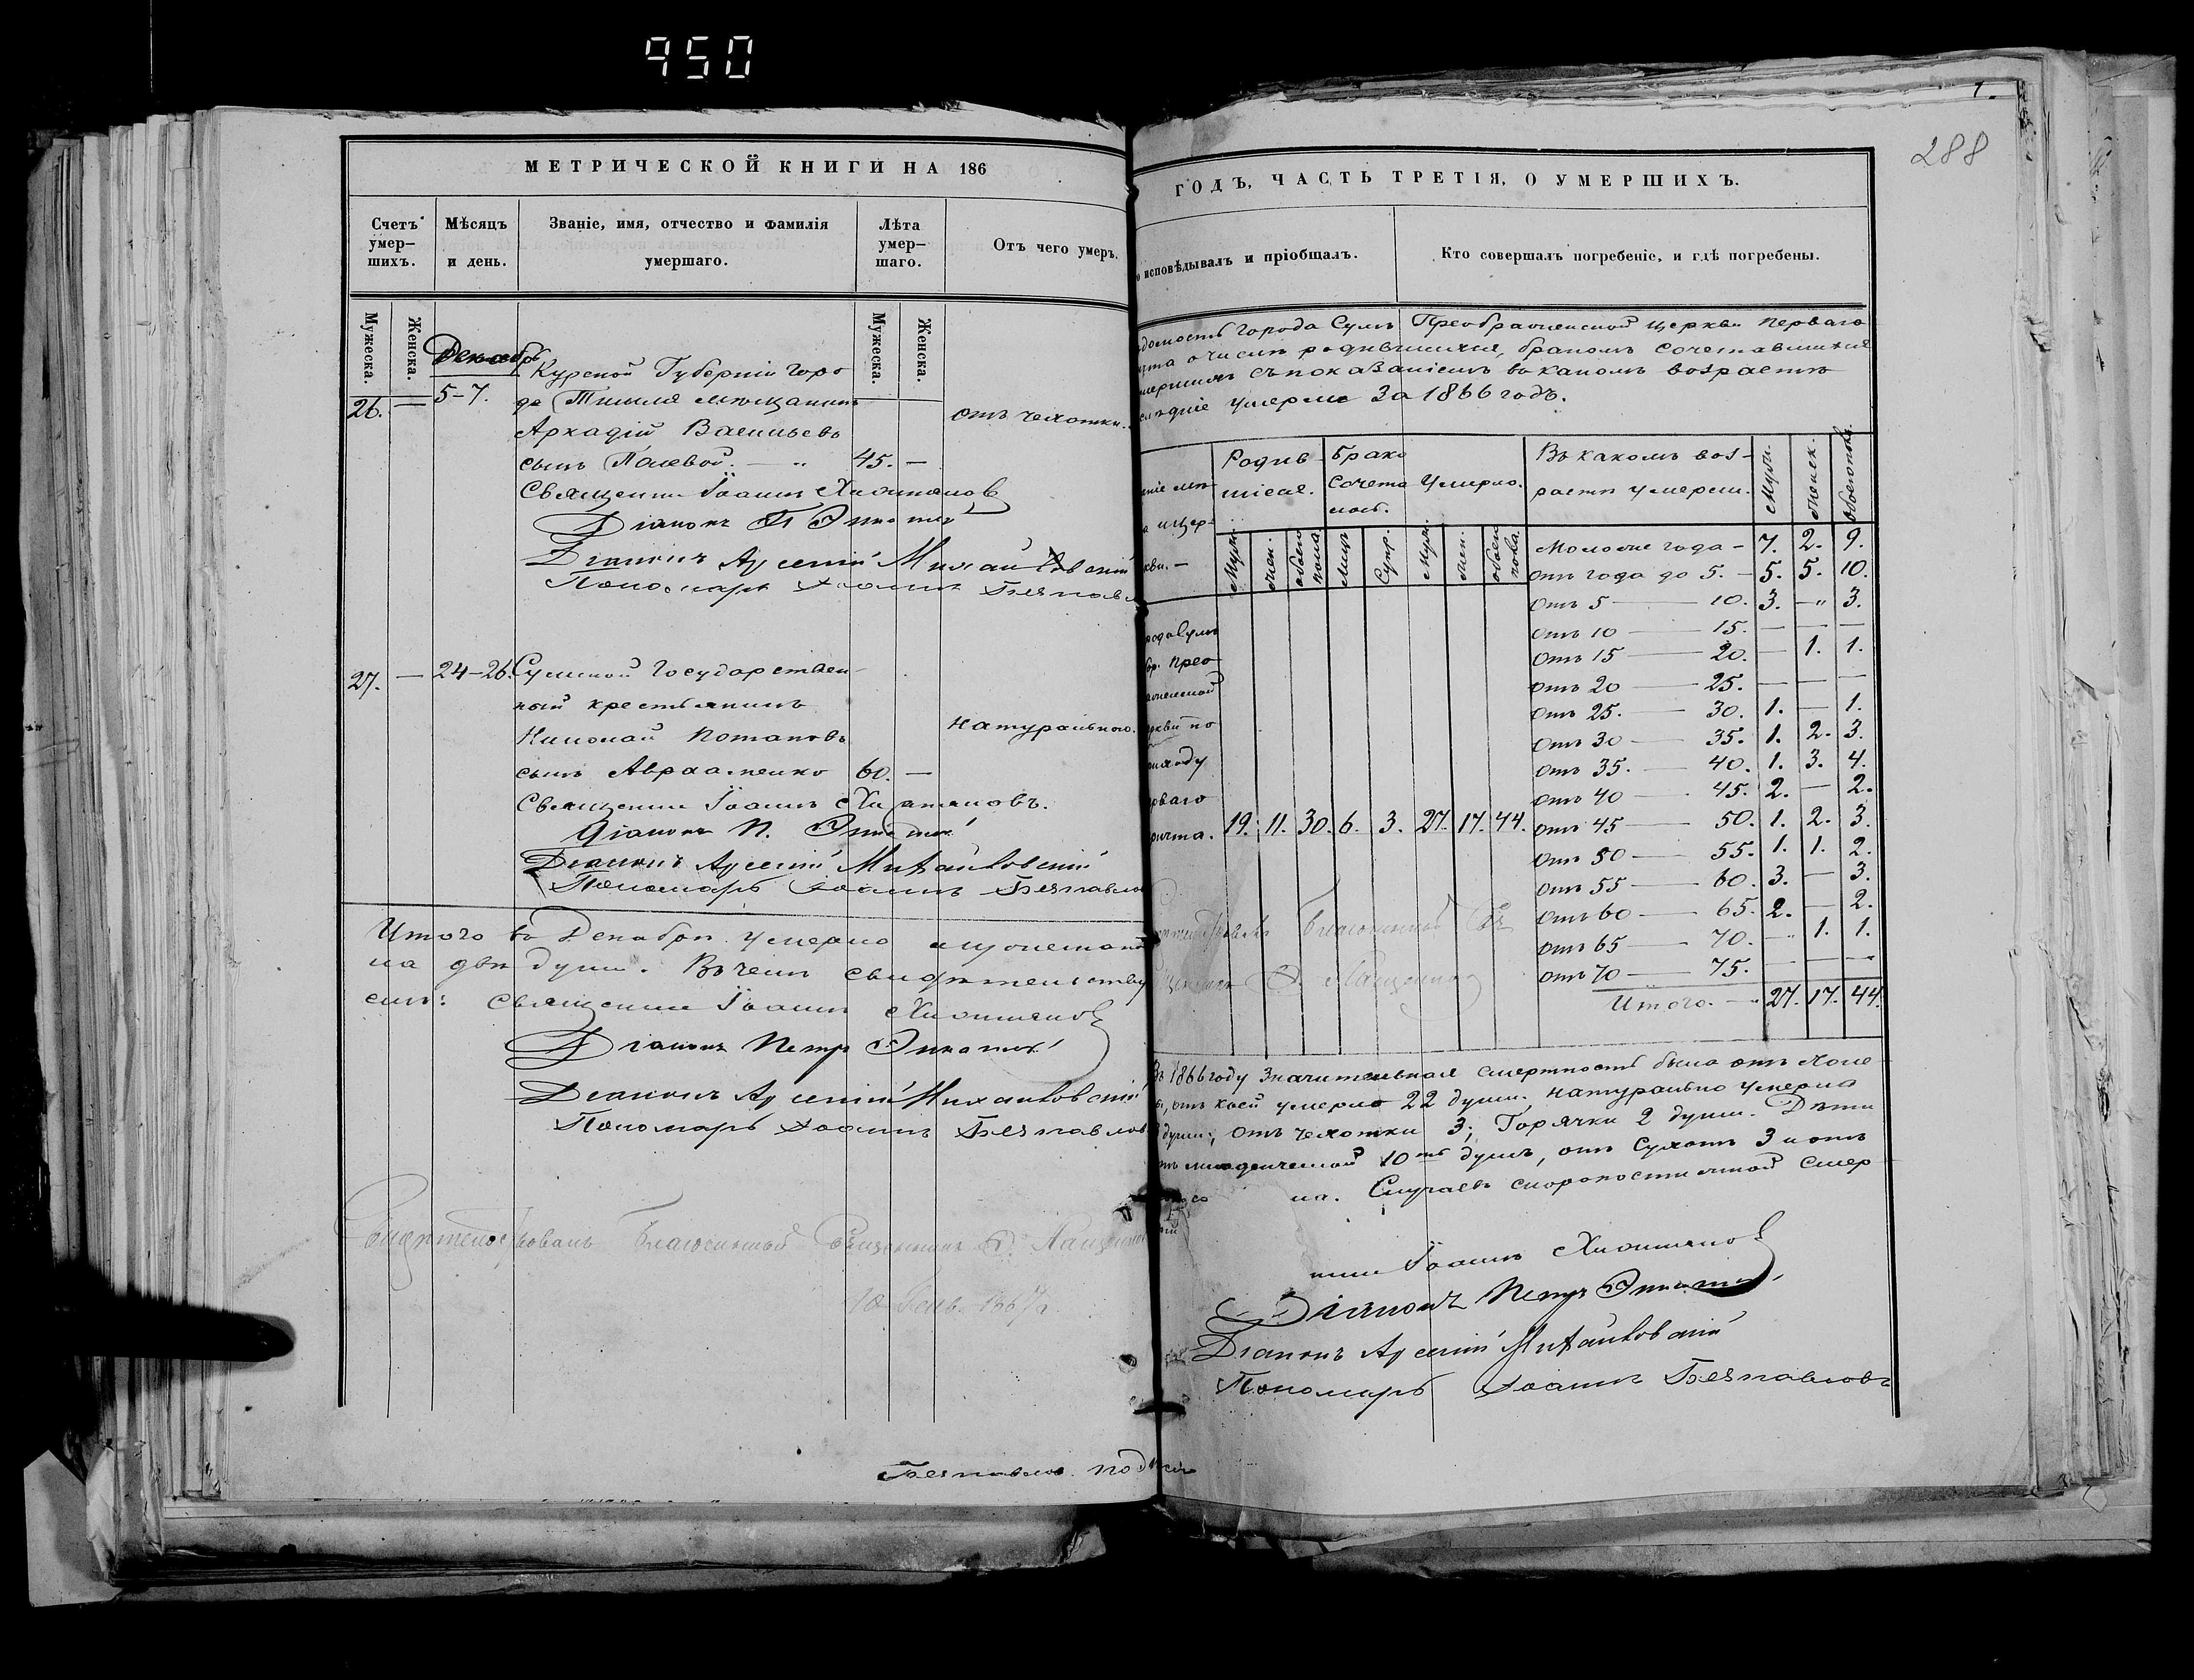 950
288
МЕТРИЧЕСКОЙ КНИГИ НА 186
Счетъ умер-
шихъ.
Мѣсяцъ
и день.
Званіе, имя, отчество и фамилія
умершаго.
Лѣта
умер-
шаго.
Отъ чего умеръ.
Мужеска.
Женска.
Мужеска.
Женска.
Декабрь
5-7.
26. —
Курской Губерніи горо
да Тима мѣщанинъ
Аркадій Васильевъ
сынъ Полевой. — 45. —
отъ чахотки.
Священник Іоаннъ
Діаконъ П
Діаконъ Арсеній Михайловскій
Пономарь Іоаннъ
27. — 24-26.
Сумской Государствен-
ный крестьянинъ
Николай Потаповъ
сынъ Авраменко 60. —
натурально.
Священник Іоаннъ
Діаконъ П.
Діаконъ Арсеній Михайловскій
Пономарь Іоаннъ
Итого въ Декабрѣ умерло мужеска
на двѣ души. Въ чемъ свидѣтельству
емъ: Священник Іоаннъ
Діаконъ Петръ
Діаконъ Арсеній Михайловскій
Пономарь Іоаннъ Безпавлов
Свидѣтельствовалъ Благочинный Священникъ
10 Генв. 1867 г.
Безпавлов
ГОДЪ, ЧАСТЬ ТРЕТІЯ, О УМЕРШИХЪ.
исповѣдывалъ и пріобщалъ.
Кто совершалъ погребеніе, и гдѣ погребены.
домость Города Сумъ Преображенской церкви перваго
чта о числѣ родившихся, бракомъ сочетавшихся
мершихъ съ показаніемъ въ какомъ возрастѣ
слѣдніе умерли за 1866 годъ.
Родив-
шіеся.
Брако
сочета
Умерло.
Въ какомъ воз-
растѣ умерли.
Муж.
женск.
обоего пола.
Муж.
жен.
обоего
пола
Лицъ
Супр.
Муж.
жен.
обоего
пола.
Моложе года - 7. 2. 9.
отъ года до 5. - 5. 5. 10.
отъ 5 — 10. 3. — 3.
отъ 10 — 15. — — —
отъ 15 — 20. — 1. 1.
отъ 20 — 25. — — —
отъ 25. — 30. 1. — 1.
отъ 30 — 35. 1. 2. 3.
отъ 35. — 40. 1. 3. 4.
отъ 40 — 45. 2. — 2.
отъ 45 — 50. 1. 2. 3.
отъ 50 — 55. 1. 1. 2.
отъ 55 — 60. 3. — 3.
отъ 60 — 65. 2. — 2.
отъ 65 — 70. — 1. 1.
отъ 70 — 75. — — —
Итого. — 27. 17. 44.
рода Сумъ
Прео
ображенской
церкви по
приходу
перваго
причта. 19. 11. 30. 6. 3. 27. 17. 44.
Благочинный
Въ 1866 году значительная смертность была отъ холе
ры, отъ коей умерло 22 души. натурально умерло
души; отъ чахотки 3; Горячки 2 души. Дѣти
младенческой 10ть душъ, отъ Сухотъ 3 и отъ
на. Случаевъ скоропостижной смер
Іоаннъ
Діаконъ Петръ
Діаконъ Арсеній Михайловскій
Пономарь Іоаннъ Безпавловъ